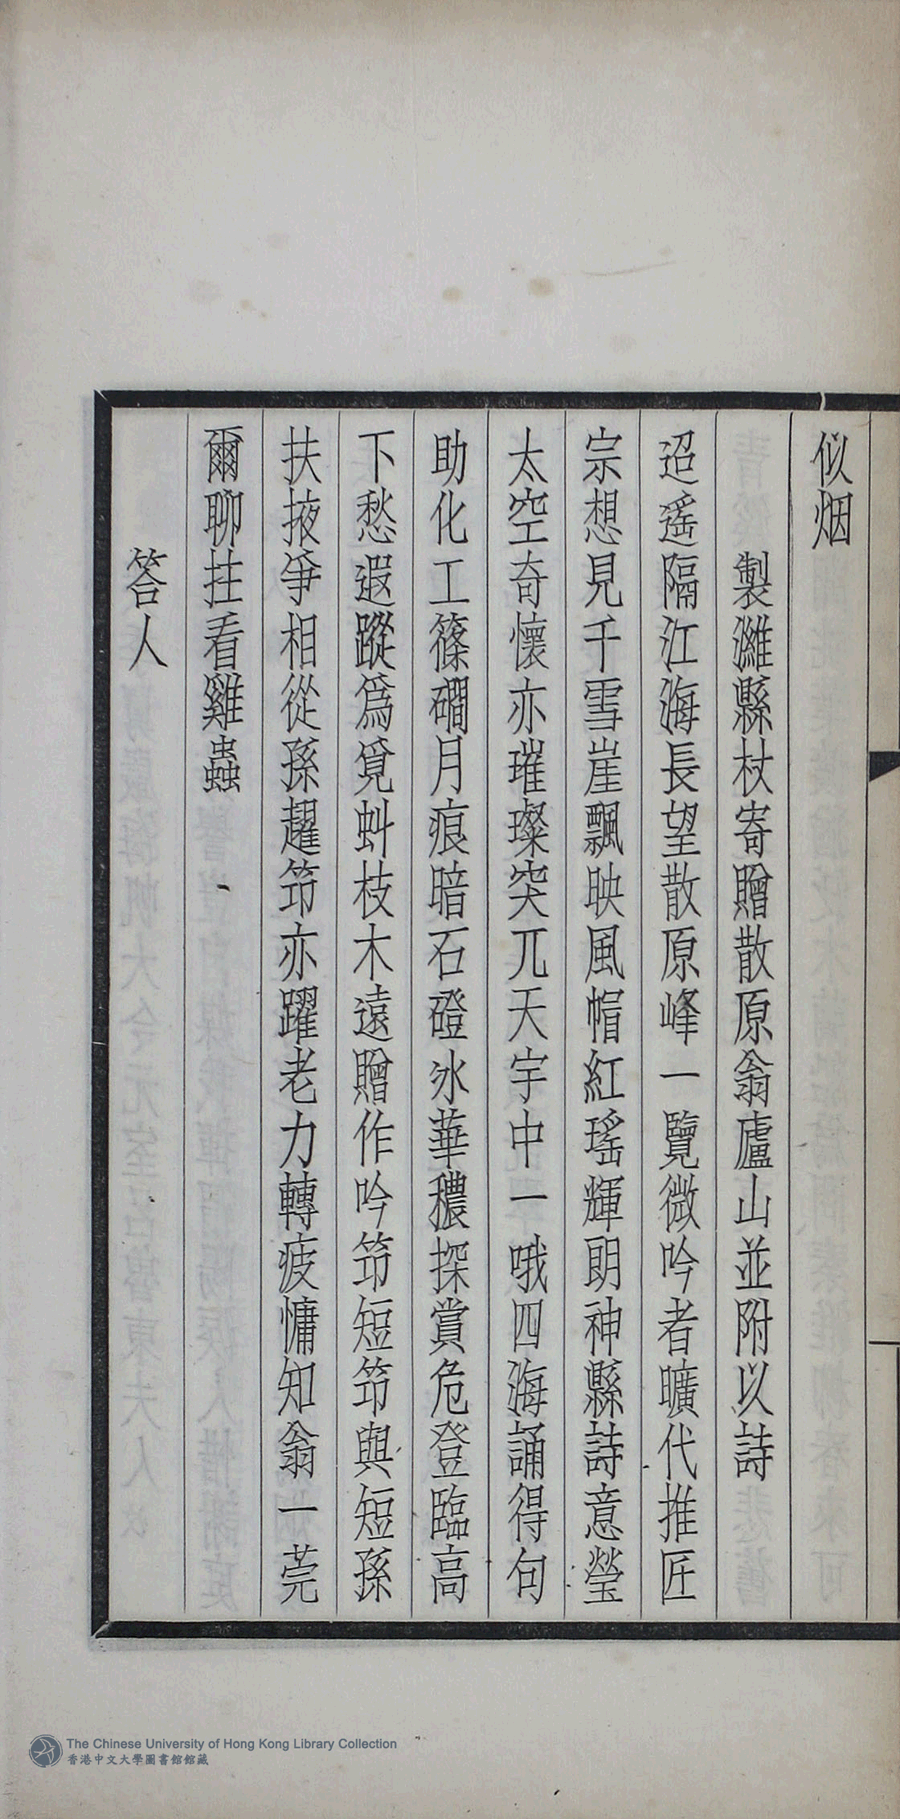 似烟
製濰縣杖寄贈散原翁廬山並附以詩
迢遙隔江海長望散原峰一覽微吟者曠代推匠
宗想見千雪崖飄映風帽紅瑤輝朗神縣詩意瑩
太空奇懷亦璀璨突兀天宇中一哦四海誦得句
助化工篠磵月痕暗石磴冰華穠探賞危登臨高
下愁遐蹤為覓蚪枝木遠贈作吟筇短筇與短孫
扶掖爭相從孫趯筇亦躍老力轉疲慵知翁一莞
爾聊拄看雞蟲
答人
The Chinese University of Hong Kong Library Collection
香港中文大學圖書館館藏